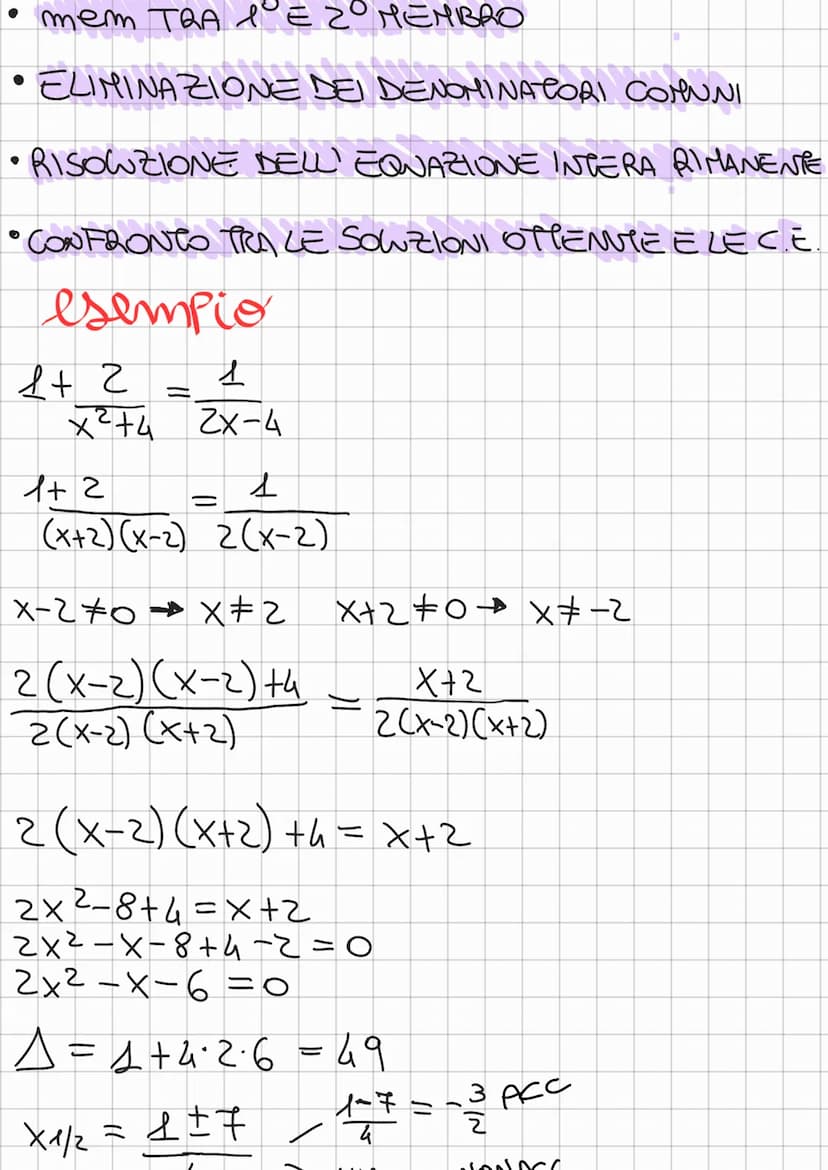 • mcm TRA 1° E 2° MEMBRO
• ELIMINAZIONE DEI DENOMINATORI COMUNI
• RISOLUZIONE DELL' EQUAZIONE INTERA RIMANENTE
• CONFRONTO TRA LE SOLUZIONI OTTENUTE E LE C.E.
esempio
1 + 2/(x²+4) = 1/(2x-4)
1 + 2/((x+2)(x-2)) = 1/(2(x-2))
x-2≠0 → x≠2   x+2≠0 → x≠-2
(2(x-2)(x-2)+4)/(2(x-2)(x+2)) = (x+2)/(2(x-2)(x+2))
2(x-2)(x+2)+4 = x+2
2x²-8+4 = x+2
2x²-x-8+4-2 = 0
2x²-x-6 = 0
Δ = 1+4·2·6 = 49
x1/2 = 1±7 / (1-7)/4 = -3/2 ACC